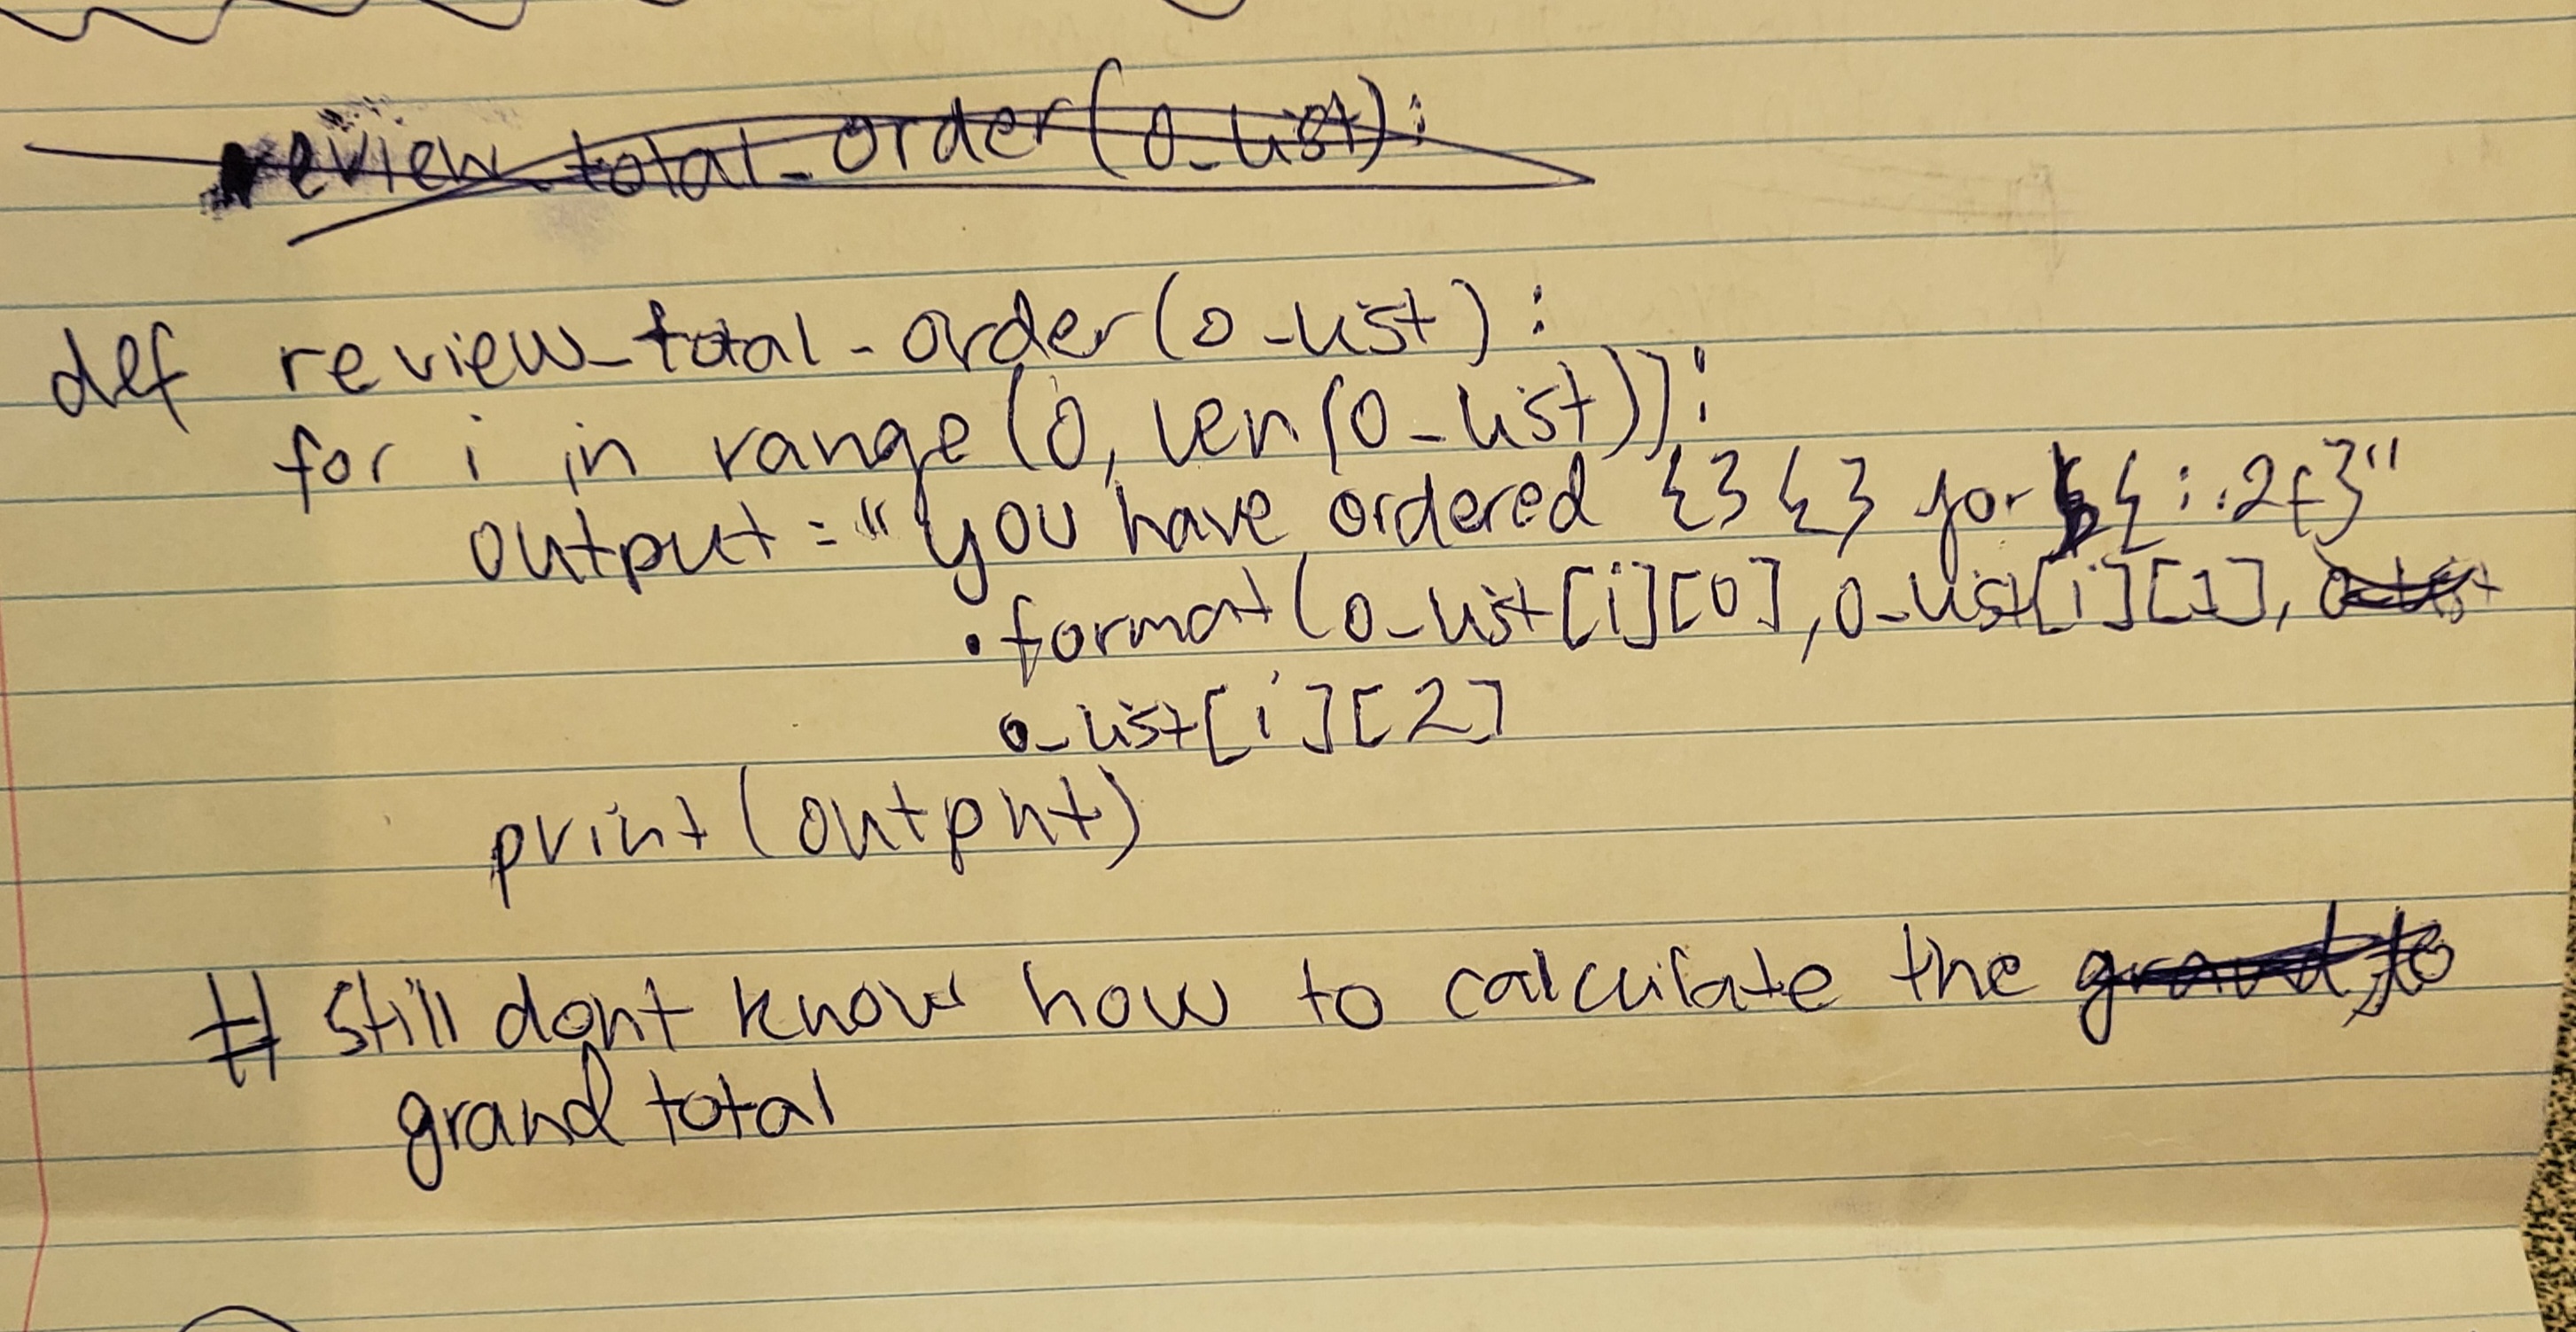 review_total_order(o_list):
def review_total_order(o_list):
for i in range(0, len(o_list)):
output = "you have ordered {} {} for {:.2f}"
.format(o_list[i][0], o_list[i][1], o_list
o_list[i][2]
print(output)
# still dont know how to calculate the grand to
grand total